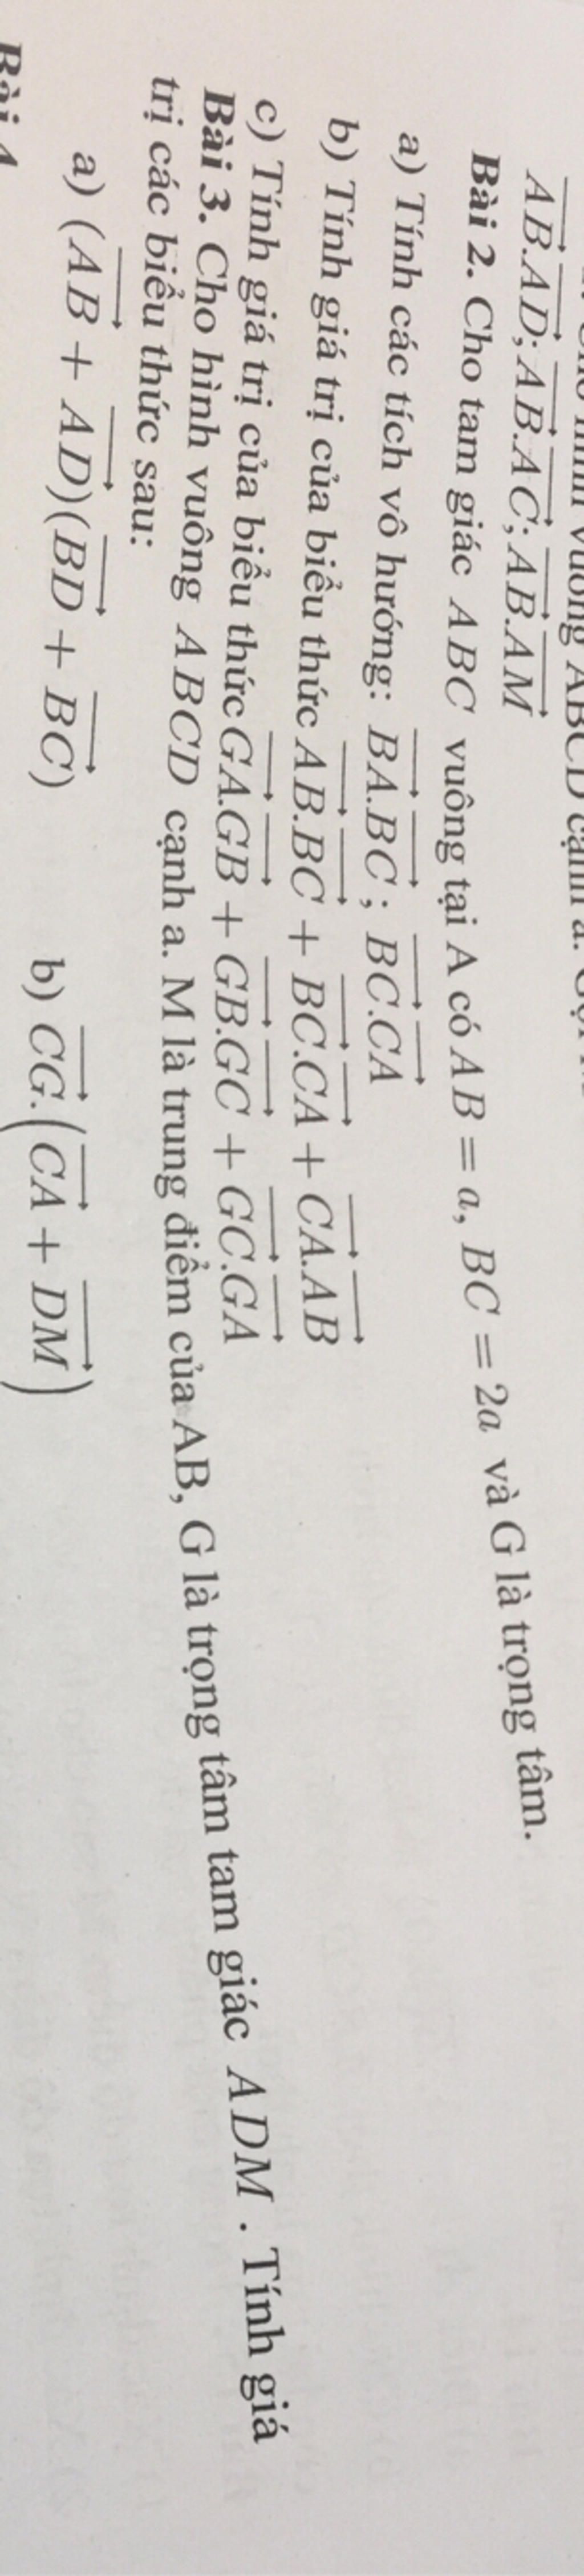 vuông ABCD cạnh a.
$\overrightarrow{AB}.\overrightarrow{AD}; \overrightarrow{AB}.\overrightarrow{AC}; \overrightarrow{AB}.\overrightarrow{AM}$
Bài 2. Cho tam giác ABC vuông tại A có AB = a, BC = 2a và G là trọng tâm.
a) Tính các tích vô hướng: $\overrightarrow{BA}.\overrightarrow{BC}; \overrightarrow{BC}.\overrightarrow{CA}$
b) Tính giá trị của biểu thức $\overrightarrow{AB}.\overrightarrow{BC} + \overrightarrow{BC}.\overrightarrow{CA} + \overrightarrow{CA}.\overrightarrow{AB}$
c) Tính giá trị của biểu thức $\overrightarrow{GA}.\overrightarrow{GB} + \overrightarrow{GB}.\overrightarrow{GC} + \overrightarrow{GC}.\overrightarrow{GA}$
Bài 3. Cho hình vuông ABCD cạnh a. M là trung điểm của AB, G là trọng tâm tam giác ADM. Tính giá
trị các biểu thức sau:
a) $(\overrightarrow{AB} + \overrightarrow{AD})(\overrightarrow{BD} + \overrightarrow{BC})$ b) $\overrightarrow{CG}.(\overrightarrow{CA} + \overrightarrow{DM})$
Bài 4